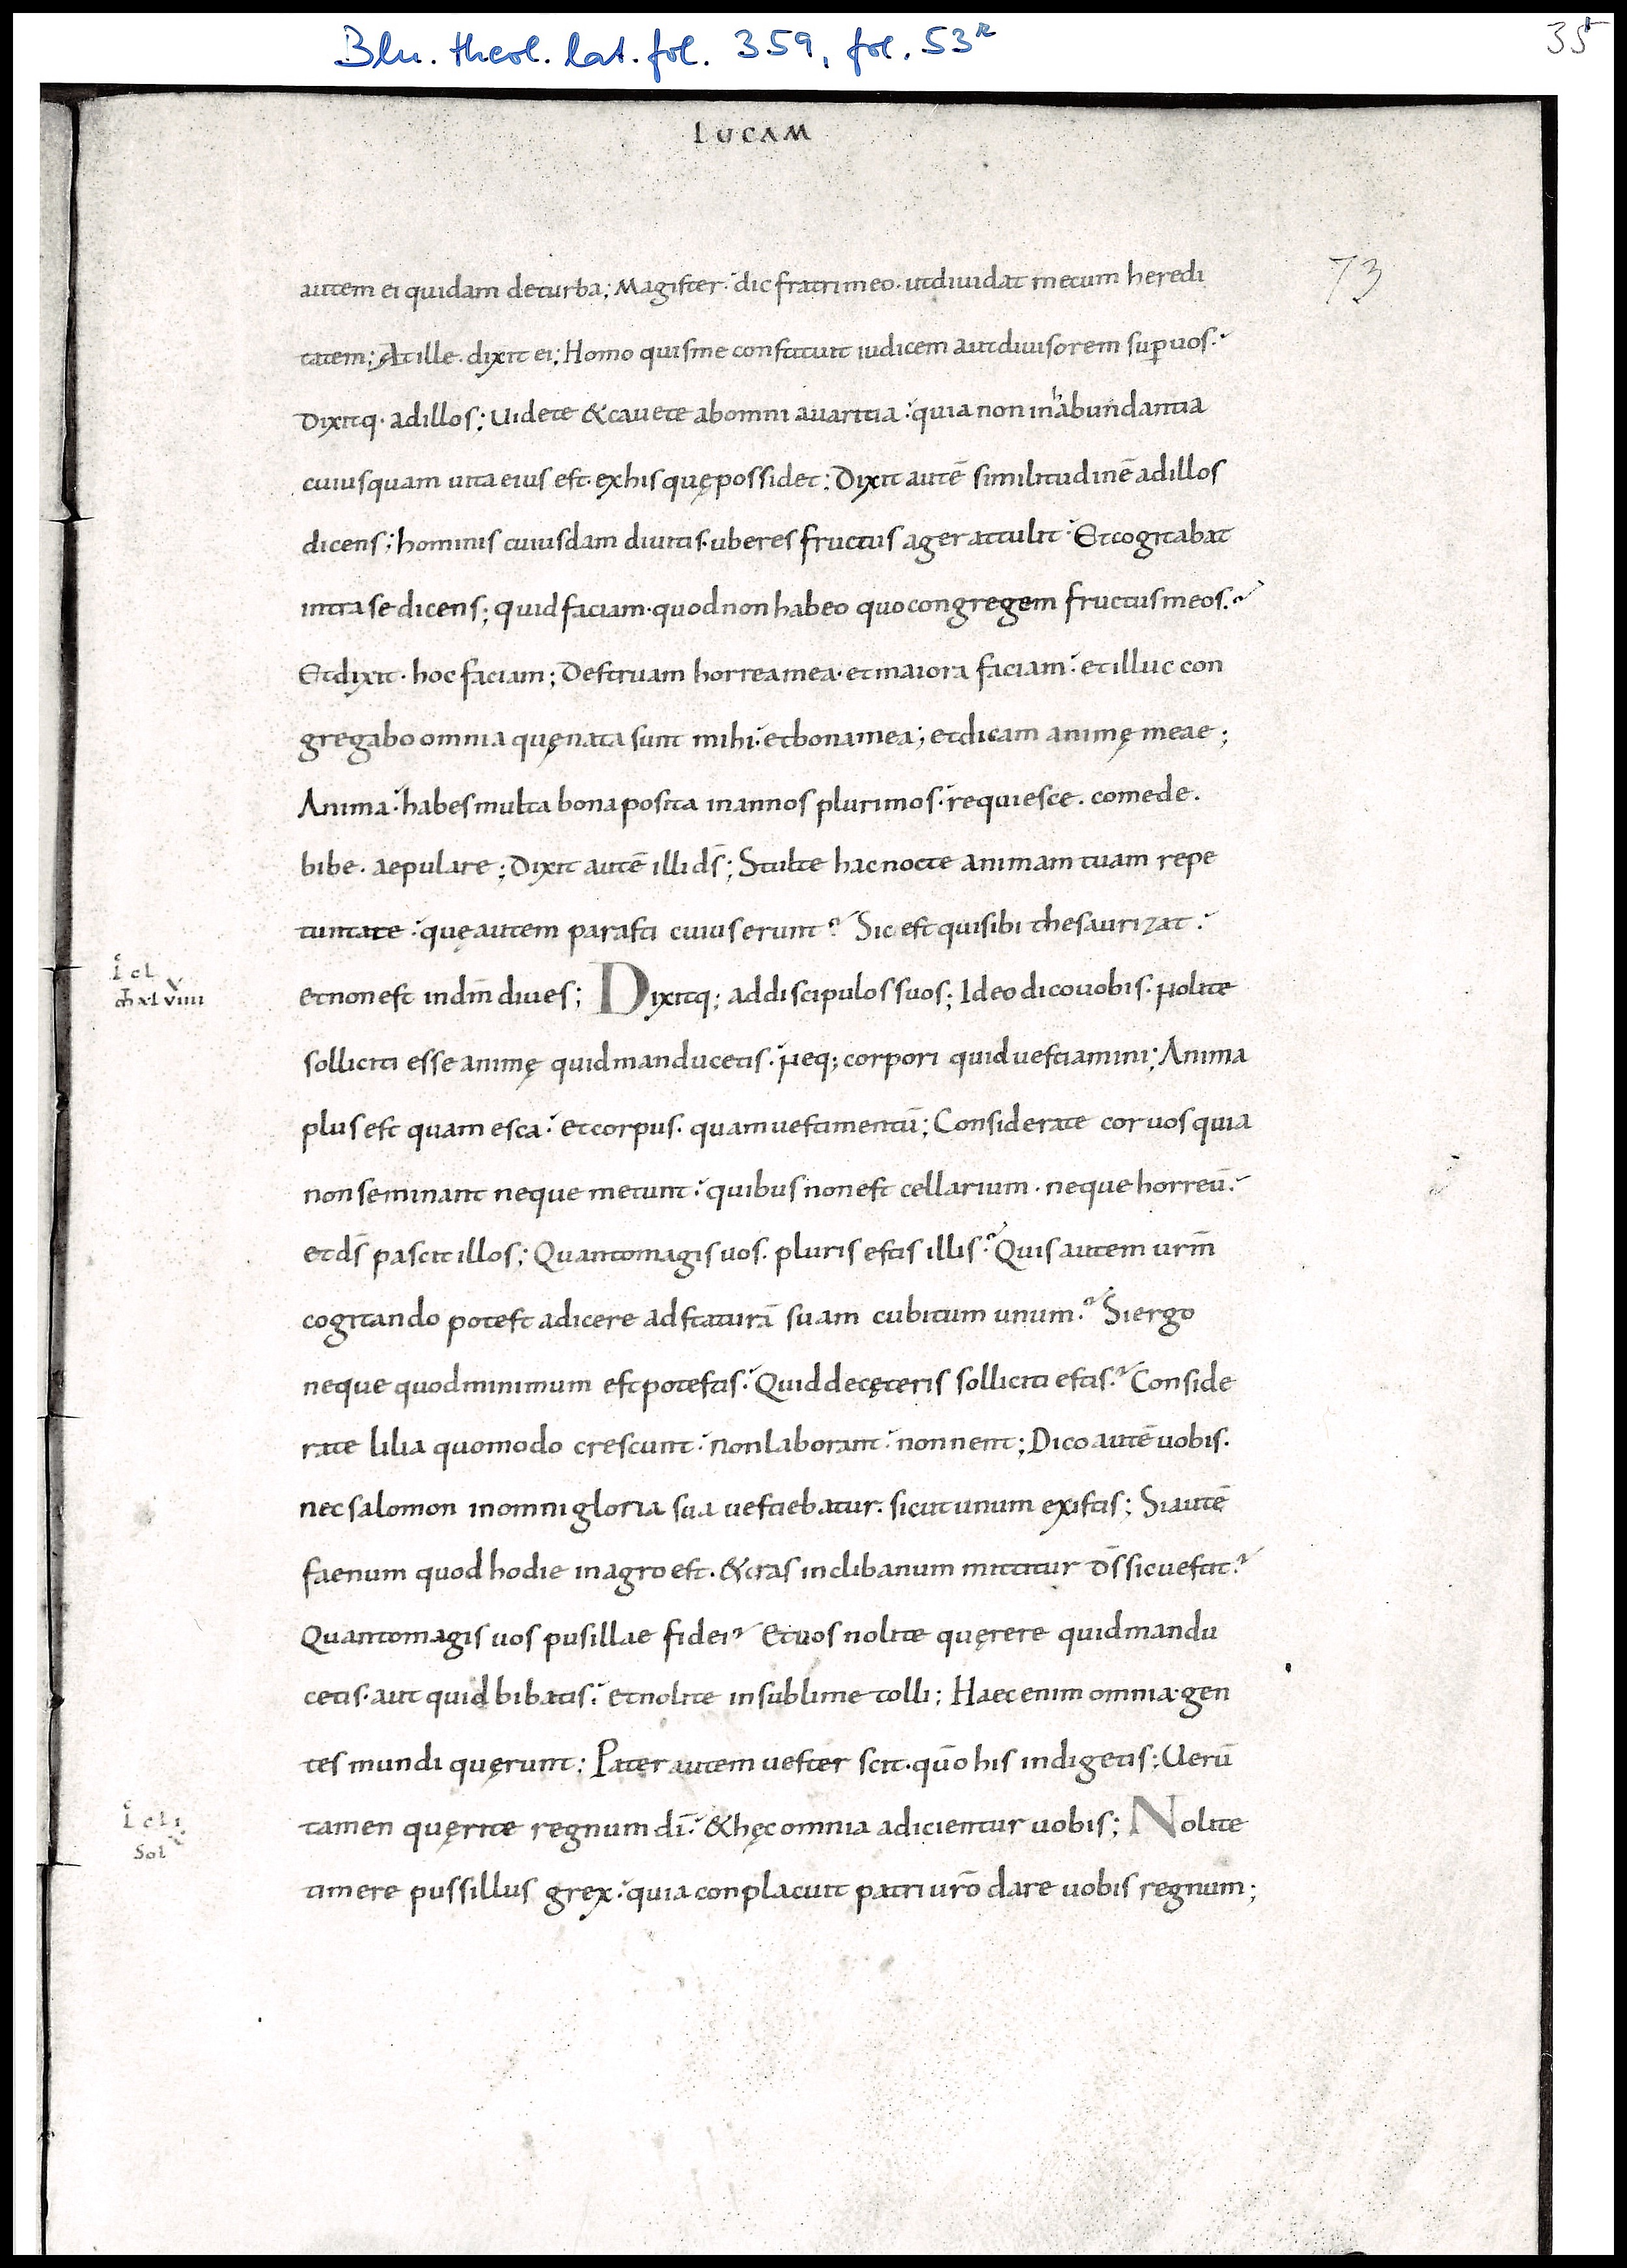 Bln. theol. lat. fol. 359, fol. 53r
35
LUCAM
73
autem ei quidam deturba; Magister· dic fratri meo· ut diuidat mecum heredi
tatem; At ille· dixit ei; Homo quis me constituit iudicem aut diuisorem sup̄ uos·
Dixitq· ad illos; Uidete & cauete ab omni auaritia· quia non in habundantia
cuiusquam uita eius est· ex his quę possidet; Dixit autē similitudinē ad illos
dicens; hominis cuiusdam diuitis· uberes fructus ager attulit· Et cogitabat
intra se dicens; quid faciam· quod non habeo quo congregem fructus meos·
Et dixit· hoc faciam; Destruam horrea mea· et maiora faciam· et illuc con
gregabo omnia quę nata sunt mihi· et bona mea; et dicam animę meae;
Anima· habes multa bona posita in annos plurimos· requiesce· comede·
bibe· aepulare; Dixit autē illi d̄s; Stulte hac nocte animam tuam repe
tunt a te· quę autem parasti cuius erunt? Sic est qui sibi thesaurizat·
et non est in d̄m diues; Dixitq; ad discipulos suos; Ideo dico uobis· Nolite
solliciti esse animę quid manducetis· Neq; corpori quid uestiamini; Anima
plus est quam esca· et corpus· quam uestimentū; Considerate coruos quia
non seminant neque metunt· quibus non est cellarium· neque horreū·
et d̄s pascit illos; Quanto magis uos· pluris estis illis? Quis autem urm̄
cogitando potest adicere ad staturā suam cubitum unum? Si ergo
neque quod minimum est potestis· Quid de cęteris solliciti estis? Conside
rate lilia quomodo crescunt· non laborant· non nent; Dico autē uobis·
nec salomon in omni gloria sua uestiebatur· sicut unum ex istis; Si autē
faenum quod hodie in agro est· & cras in clibanum mittitur d̄s sic uestit?
Quanto magis uos pusillae fidei? Et uos nolite quęrere quid mandu
cetis· aut quid bibatis· et nolite in sublime tolli; Haec enim omnia· gen
tes mundi quęrunt; Pater autem uester scit· quō his indigetis; Uerū
tamen quęrite regnum dī· & hęc omnia adicientur uobis; Nolite
timere pussillus grex· quia conplacuit patri urō dare uobis regnum;